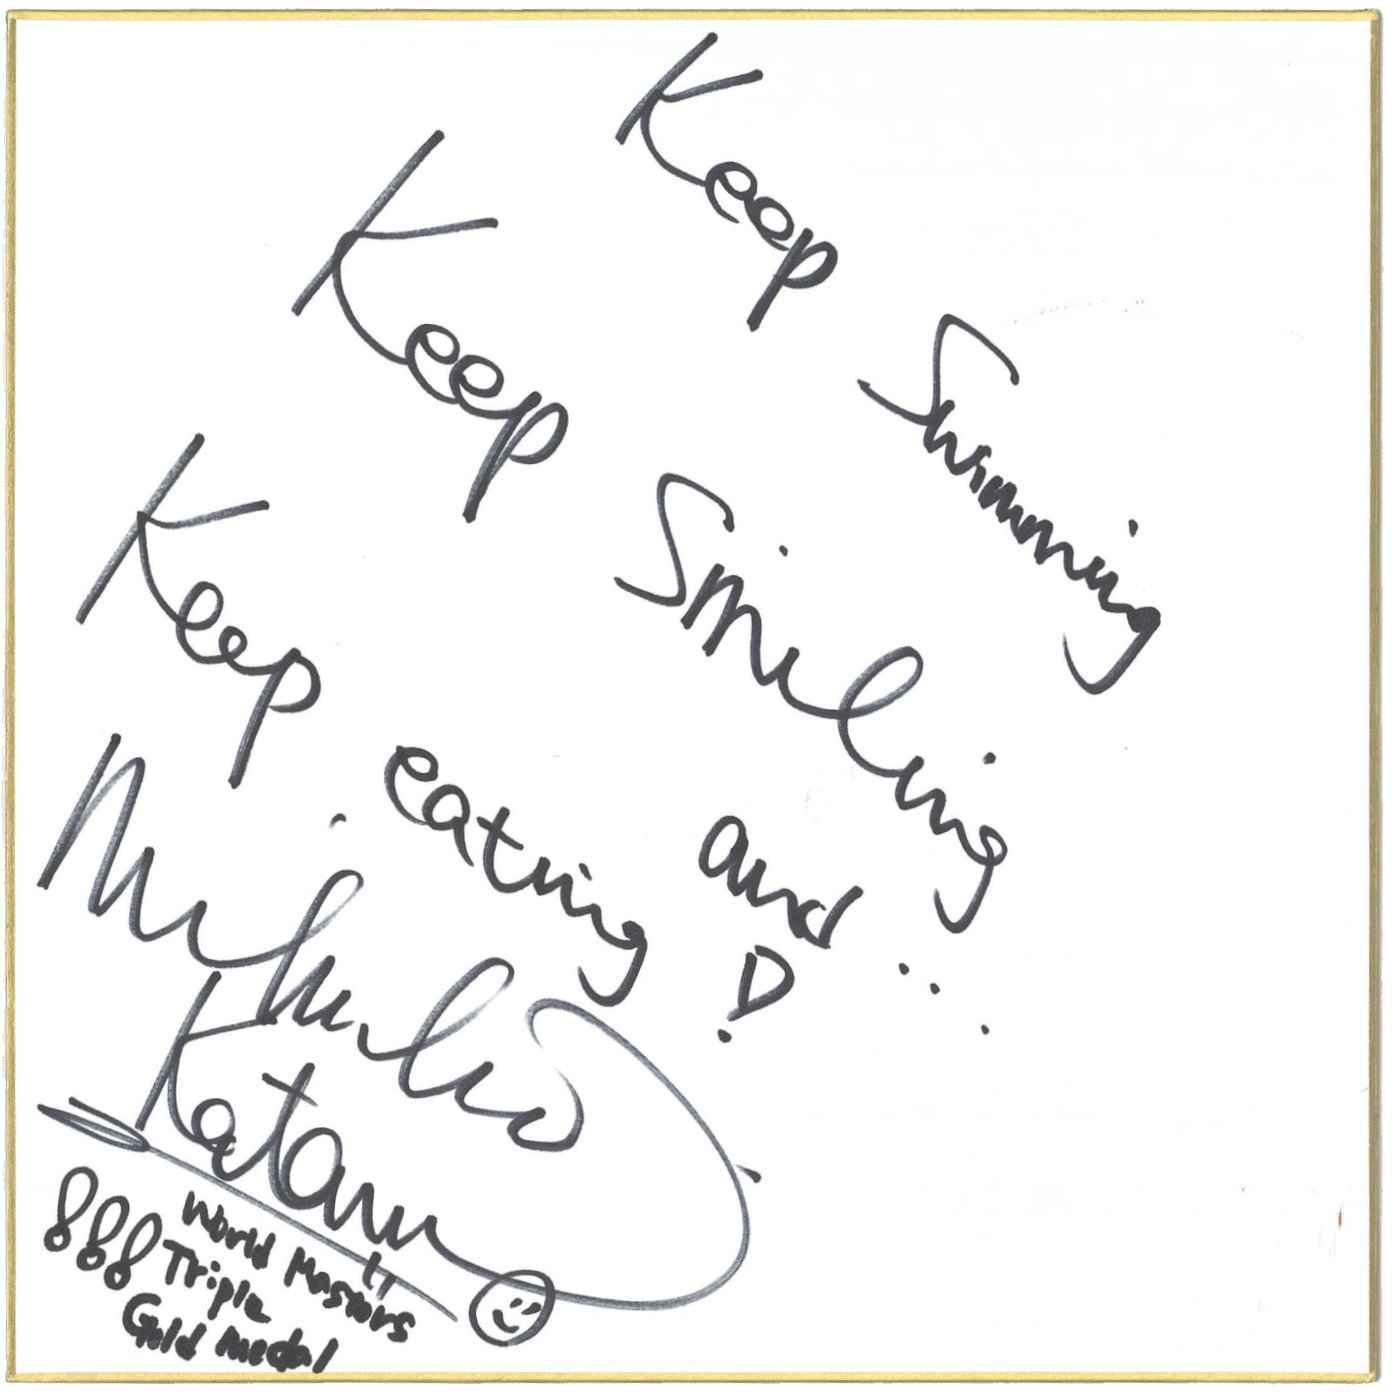 Keep Swimming
Keep Smiling
and...
Keep eating!
Mihiko
Katani
World Masters
Triple
Gold Medal